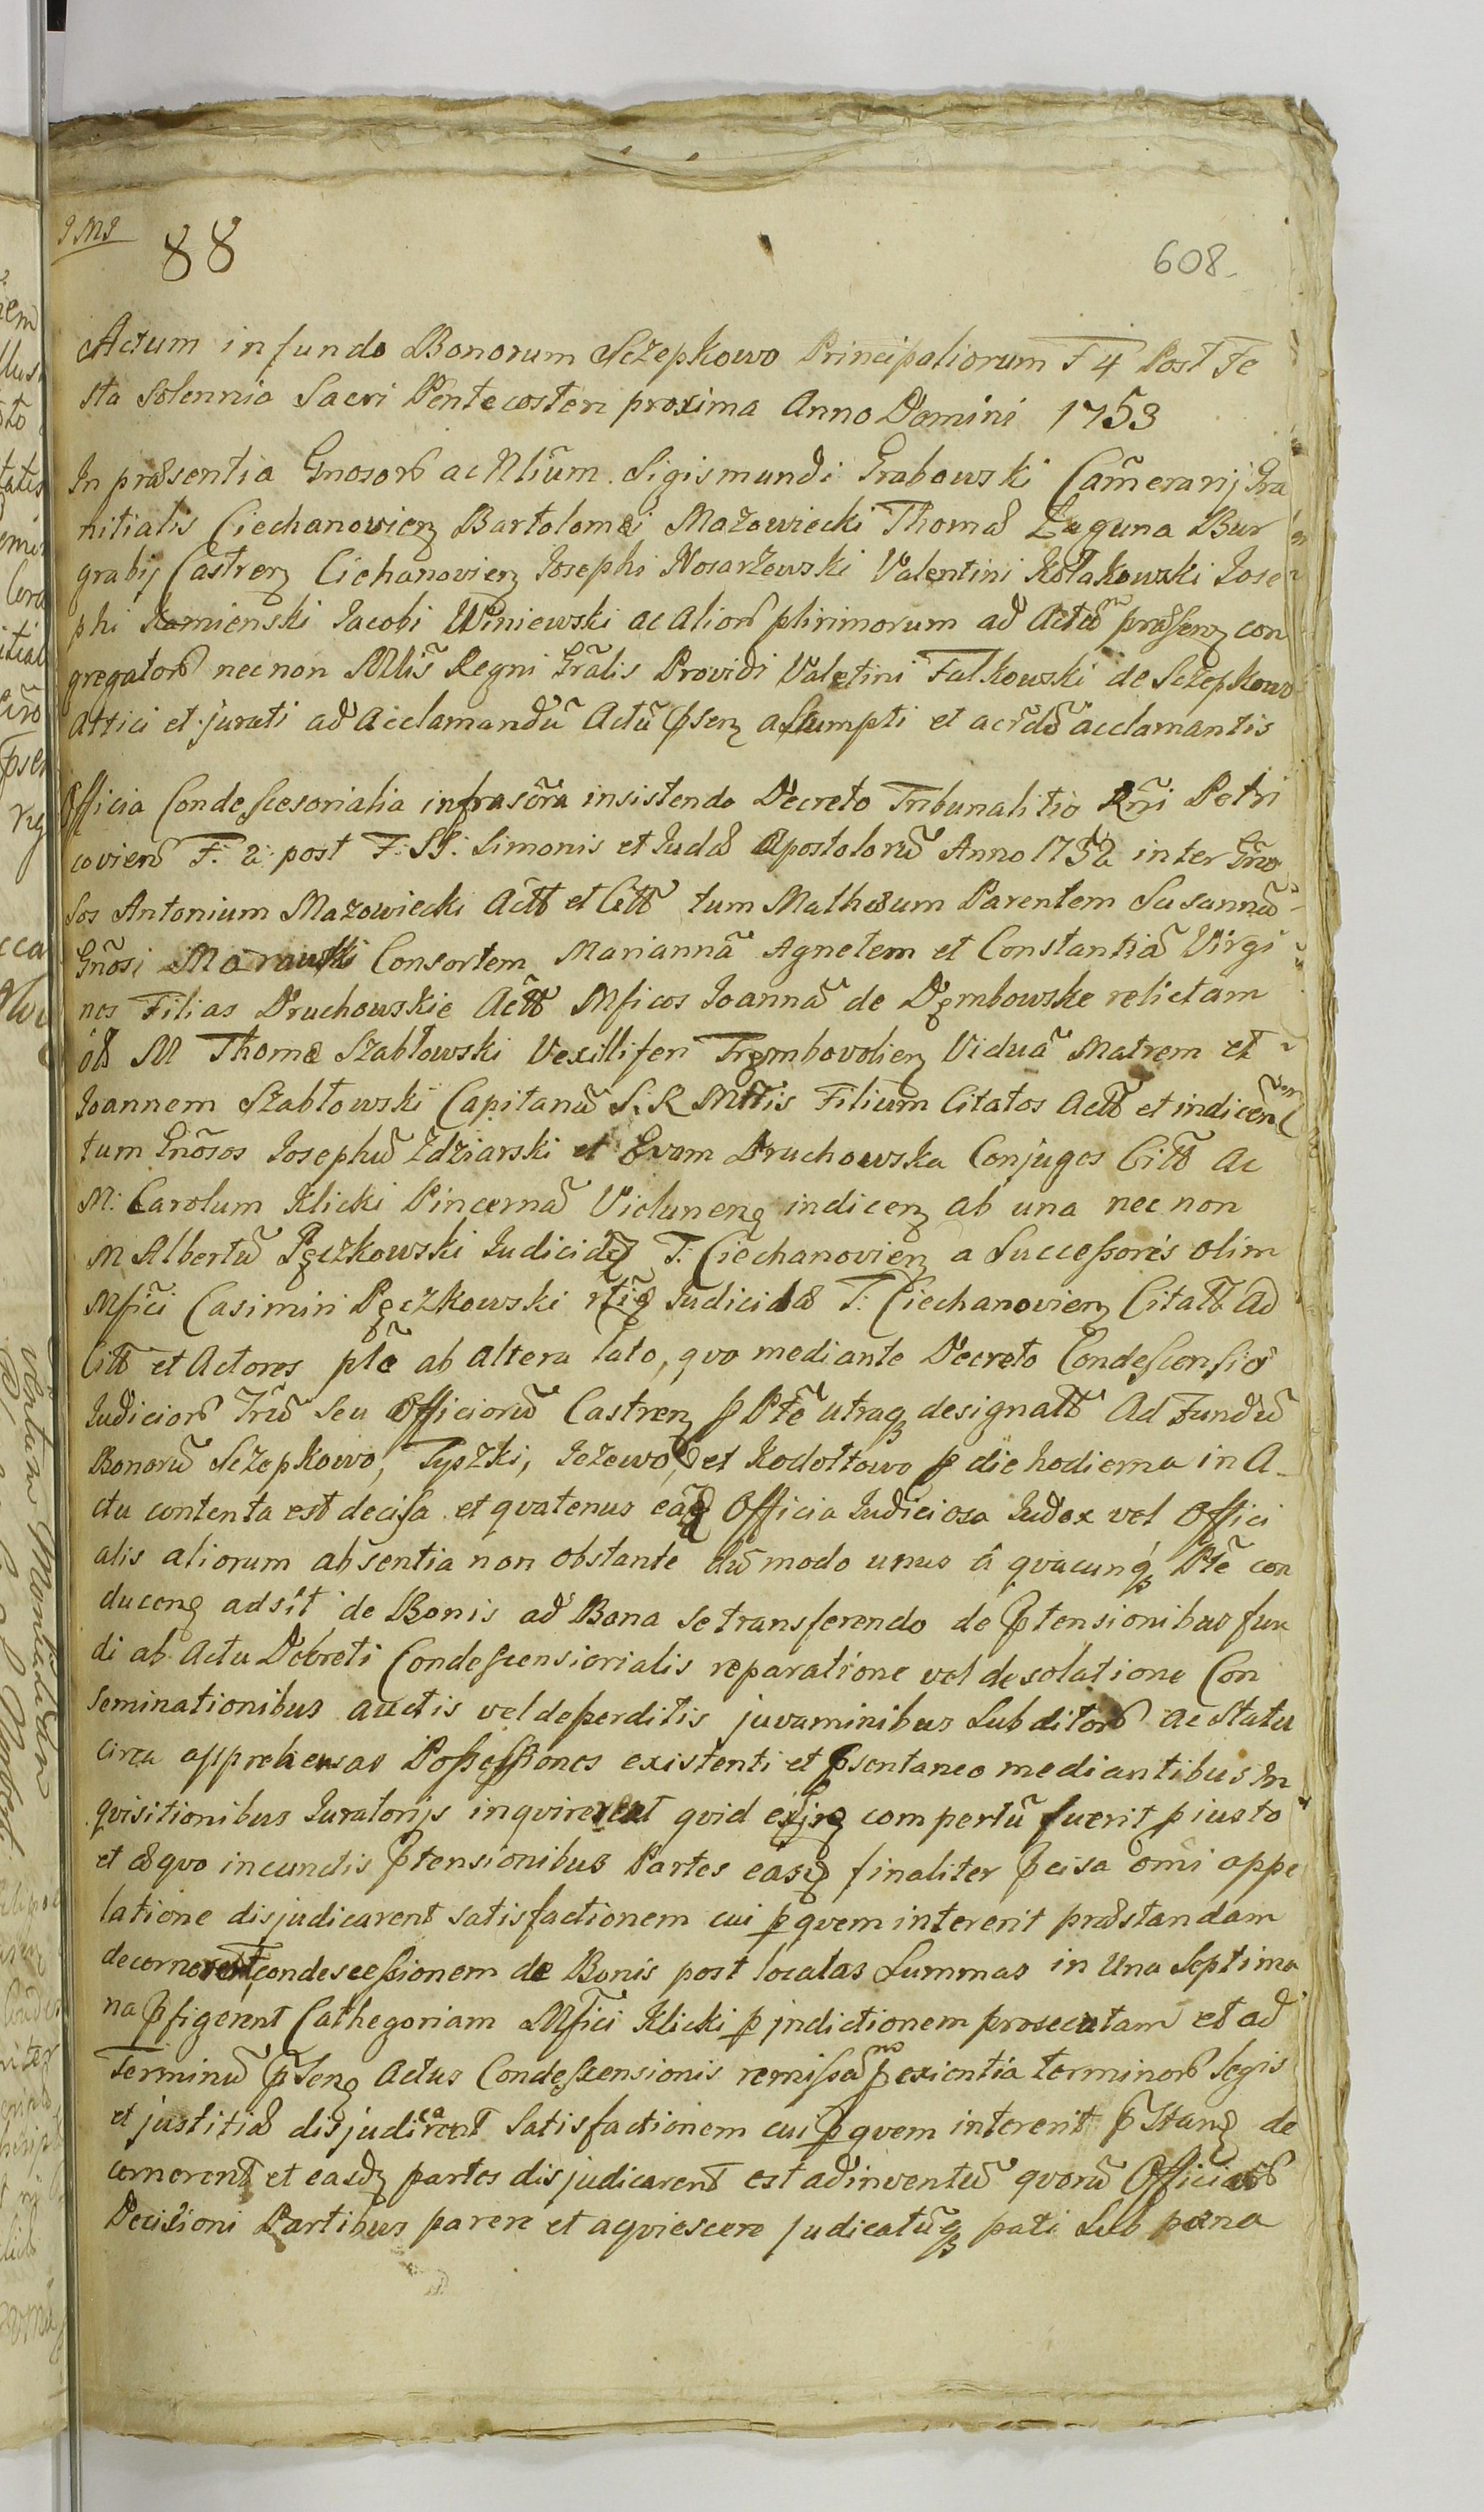 JMJ
88
608
Actum in fundo Bonorum Sczepkowo Principaliorum F 4 Post Fe
sta Solennia Sacri Pentecosten proxima Anno Domini 1753
In præsentia Gnosorũ ac Nliũm Sigismundi Grabowski Camẽrarij Gra
nitialis Ciechanovien̄ Bartolomæi Mazowiecki Thomæ Łaguna Bur
grabij Castren̄ Cichanovien̄ Josephi Nosarzewski Valentini Kołakowski Jose
phi Kamienski Jacobi Winiewski ac Aliorũ plirimorum ad Actũ præsen̄ con
gregatorũ nec non Mllis̃ Regni Grãlis Providi Valetini Falkowski de Sczepkowo
Attici et jurati ad Acclamandũ Actũ pñsen̄ assumpti et acclamantis
Officia Condescesorialia infrascr̃a insistendo Decreto Tribunalitio Rñi Petri
covien̄ F. 2. post F: SS: Simonis et Judæ Apostolorũ Anno 1752 inter Gñro
sos Antonium Mazowiecki Actt̃ et Citt̃ tum Mathæum Parentem Susannã
Gñosi Marawski Consortem Mariannã Agnetem et Constantiã Virgi
nes Filias Druchowskie Actt̃ Mficos Joannã de Dęmbowskie relictam
M Thomæ Szabłowski Vexilliferi Trembovolien̄ Viduã Matrem et
Joannem Szabłowski Capitanũ S. R. Mttis Filium Citatos Actt̃ et indicẽn
tum Gñosos Josephũ Zdziarski et Evam Druchowska Conjuges Citt̃ Ac
M: Carolum Klicki Pincernã Vielunen̄ indicen̄ ab una nec non
M Albertũ Pęczkowski Judicidem T: Ciechanovien̄ a Successorẽs olim
Mfici Casimiri Pęczkowski Judicidæ T: Ciechanovien̄ Citatt̃ Ac
Citt̃ et Actores ptẽ ab altera lato, qvo mediante Decreto Condescensio
Judiciorũ Trrũ Seu Officiorũ Castren̄ p Ptẽ utraq designatt̃ Ad Fundũ
Bonorũ Sczepkowo, Tyszki, Jezewo, et Kodołtowo p die hodierna in A
ctu contenta est decisa et qvatenus eãd Officia Judiciosa Judex vel Offici
alis aliorum absentia non obstante dũ modo unus â qvacunq Ptẽ con
ducen̄ adsit de Bonis ad Bona Se transferendo de Ptensionibus fun
di ab Actu Decreti Condescensiorialis reparatione vel desolatione Con
seminationibus auctis vel deperditis juvaminibus Subditorũ ac Statu
circa apprehensas Possessiones existenti et pñsentaneo mediantibus In
qvisitionibus Juratorijs inqvirerent qvid ex compertũ fuerit p iusto
et æqvo in cunctis Ptensionibus Partes easd finaliter pcisa omĩ appe
latione disjudicarent satisfactionem cui p qvem intererit præstandam
decernerent condescessionem de Bonis post locatas Summas in Una Septima
na pfigerent Cathegoriam Mfici Klicki p jndictionem prosecutam et ad
Terminũ pñsen̄ Actus Condescensionis remissam p exientia terminorũ legis
et justitiæ disjudicarent Satisfactionem cui p qvem intererit pstand de
cernerent et easd partes disjudicarent est adinventũ qvorũ Officiorũ
Decisioni Partibus parere et aqviescere judicatũq pati Sub pæna